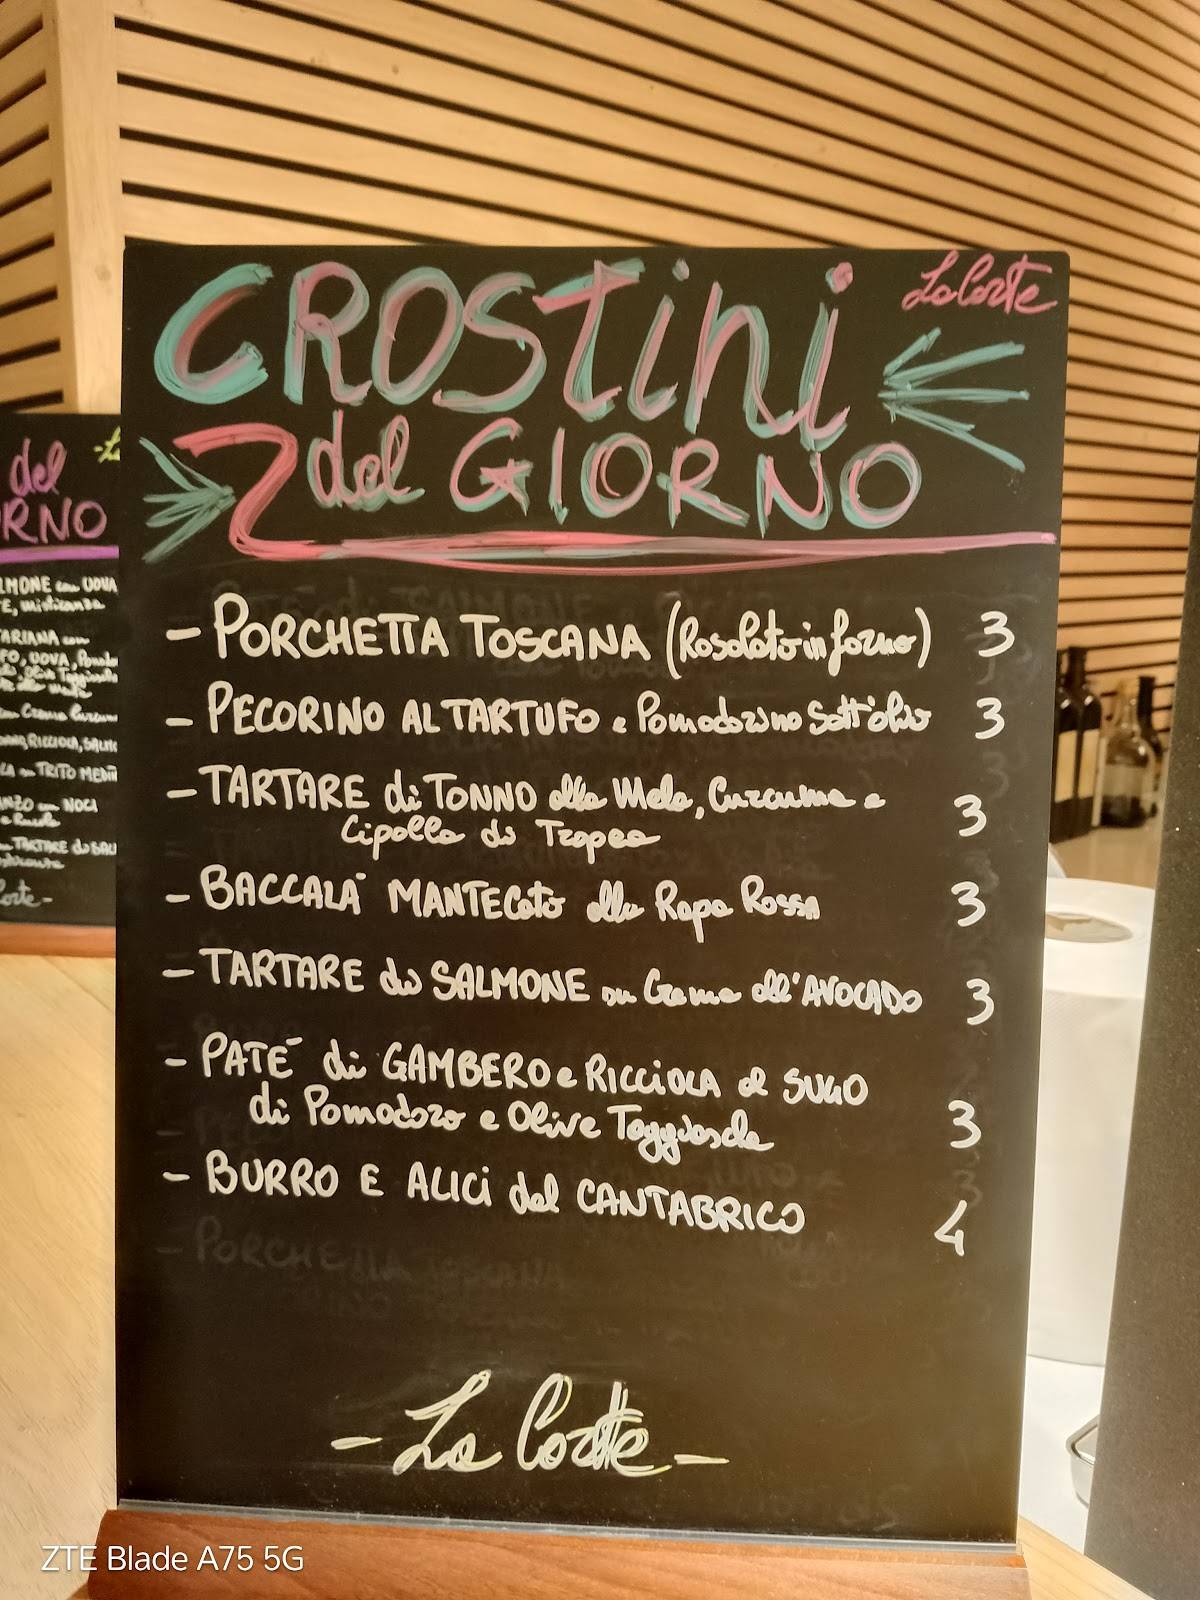 CROSTINI
La Corte
del GIORNO
- PORCHETTA TOSCANA (Rosolato in forno) 3
- PECORINO AL TARTUFO e Pomodorino Sott'olio 3
- TARTARE di TONNO alla Mela, Curcuma e
Cipolla di Tropea 3
- BACCALÀ MANTECato alla Rapa Rossa 3
- TARTARE di SALMONE su Crema all'AVOCADO 3
- PATÈ di GAMBERO e RICCIOLA al SUGO
di Pomodoro e Olive Taggiasche 3
- BURRO E ALICI del CANTABRICO 4
- La Corte -
del
ORNO
LMONE con UOVA
E, misticanza
TARIANA con
FO, UOVA, Pomodo
RICCIOLA, SALM
LA su TRITO MEDIT
NZO con NOCI
TARTARE di SAL
orte -
ZTE Blade A75 5G